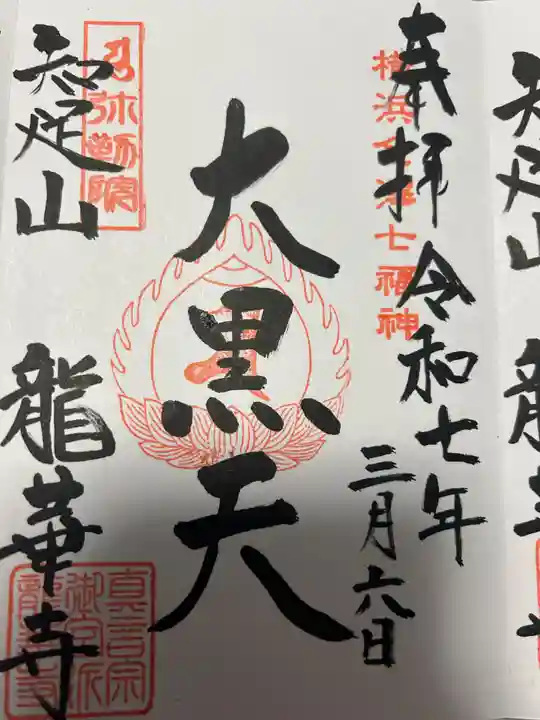 奉拝 令和七年
三月六日
横浜金澤七福神
大黒天
弥勒院
知足山 龍華寺
真言宗
御室派
龍華寺
知足山 龍華